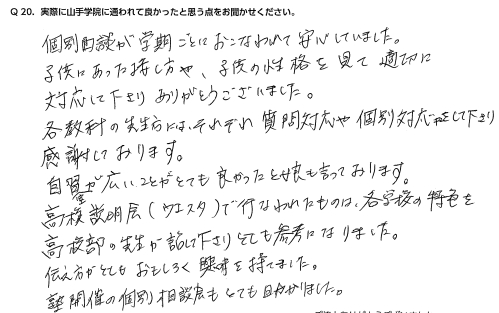 Q 20．実際に山手学院に通われて良かったと思う点をお聞かせください。
個別面談が学期ごとにおこなわれて安心していました。
子供にあった接し方や、子供の性格を見て適切に
対応して下さりありがとうございました。
各教科の先生方には、それぞれ質問対応や個別対応をして下さり
感謝しております。
自習室が広いことがとても良かったと娘も言っております。
高校説明会（ウエスタ）で行なわれたものは、各学校の特色を
高校部の先生が話して下さりとても参考になりました。
伝え方がとてもおもしろく興味を持てました。
塾開催の個別相談会もとても助かりました。